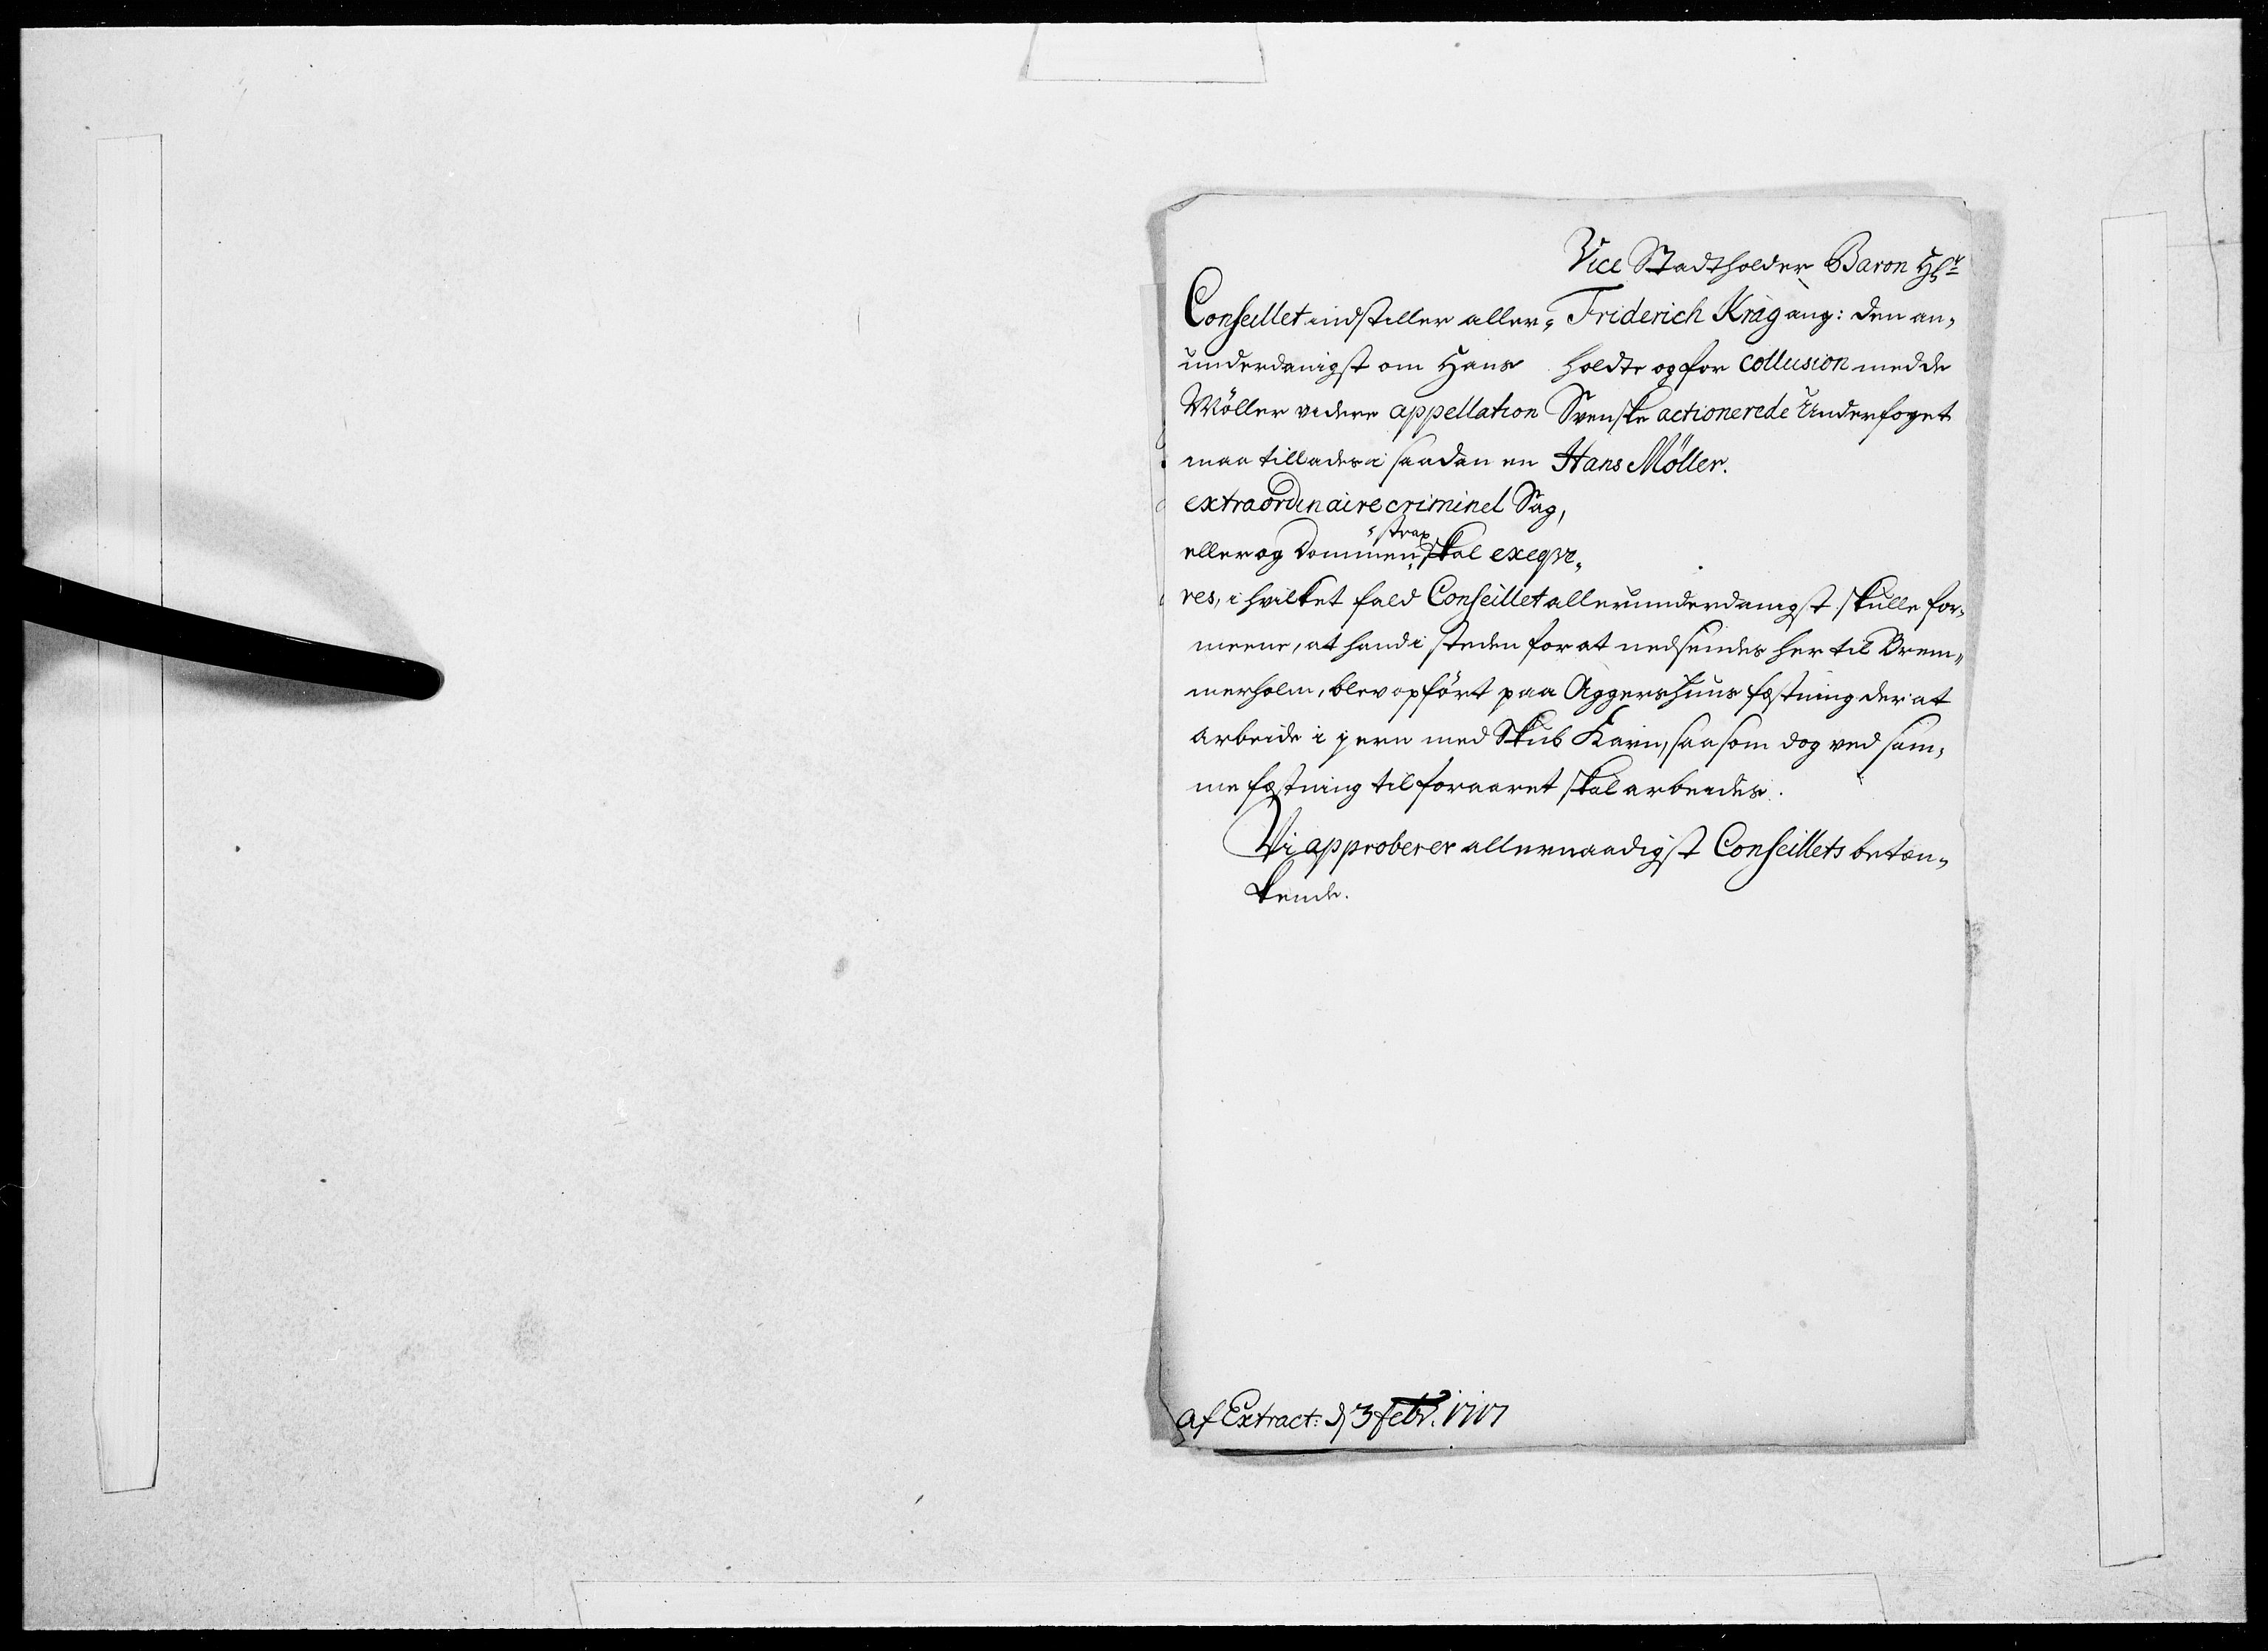 Vice Stadtholder Baron Hr
Friderich Kräg ang: den an„
holdte og for collusion med de
Svenske actionerede Underfoget
Hans Möller.
Conseillet indstiller aller„
underdanigst om Hans
Möller videre appellation
maa tillades i saadan en
extraordinaire criminel Sag,
eller og Dommen strax skal exeqve„
res, i hvilket fald Conseillet allerunderdanigst skulle for„
meene, at hand i steden for at nedsendes her til Brem„
merholm, blev opfört paa Aggershuus fæstning der at
arbeide i jern med Skub Karn, saasom dog ved sam„
me fæstning til foraaret skal arbeides.
Vi approberer allernaadigst Conseillets betæn„
kende.
af Extract: d 3 febr. 1717